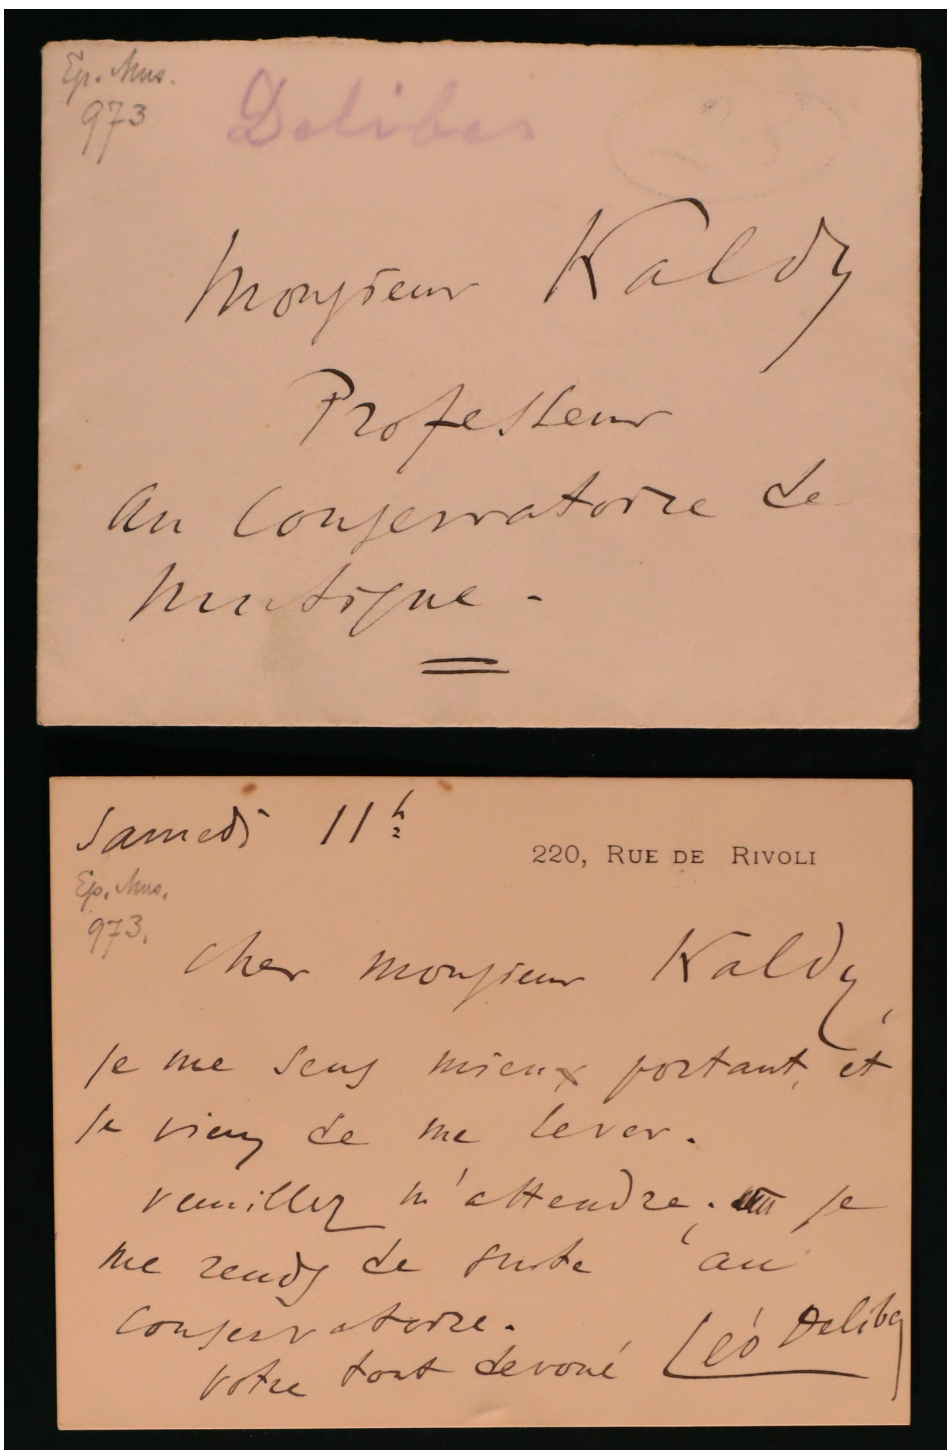 Ep. Mus.
973
Delibes
Monsieur Kaldy
Professeur
au Conservatoire de
musique.
Samedi 11h
220, RUE DE RIVOLI
Ep. Mus.
973.
Cher monsieur Kaldy,
je me sens mieux portant, et
je viens de me lever.
veuillez m'attendre. je
me rends de suite au
Conservatoire.
votre tout dévoué Léo Delibes